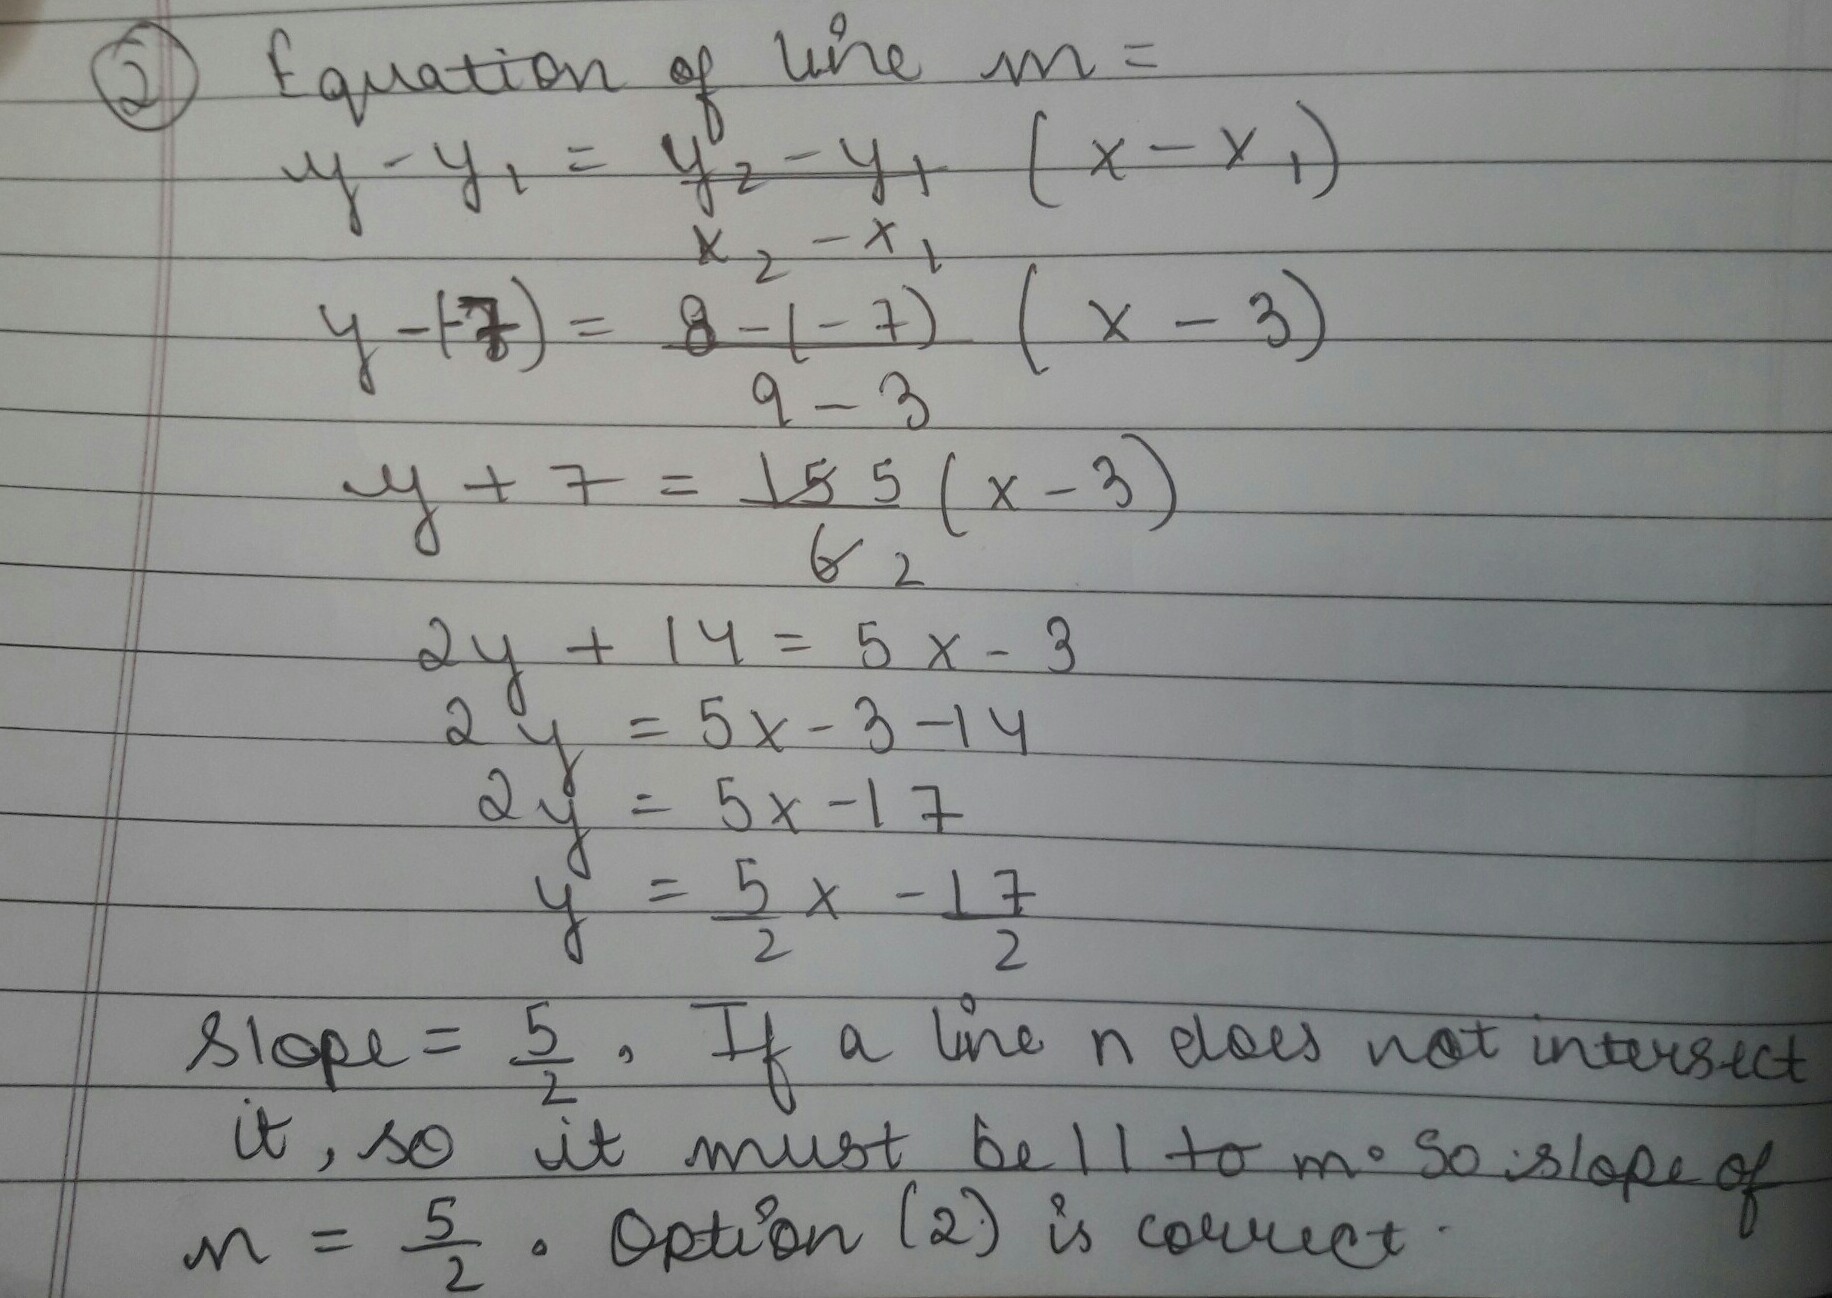 ② Equation of line m =
y - y₁ = y₂ - y₁ (x - x₁)
x₂ - x₁
y - (-7) = 8 - (-7) (x - 3)
9 - 3
y + 7 = 15 5 (x - 3)
6 2
2y + 14 = 5x - 3
2y = 5x - 3 - 14
2y = 5x - 17
y = 5/2 x - 17/2
Slope = 5/2. If a line n does not intersect
it, so it must be || to m. So slope of
n = 5/2. Option (2) is correct.